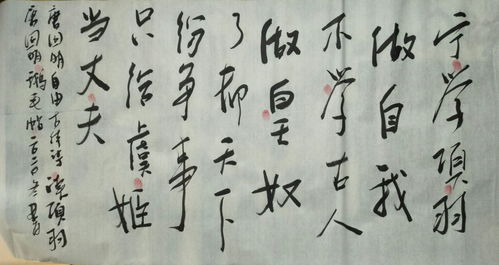 宁学项羽
做自我
不学古人
做皇奴
了却天下
纷争事
只给虞姬
当丈夫
唐国明自由古体诗项羽
唐国明鹅毛帖二〇二〇